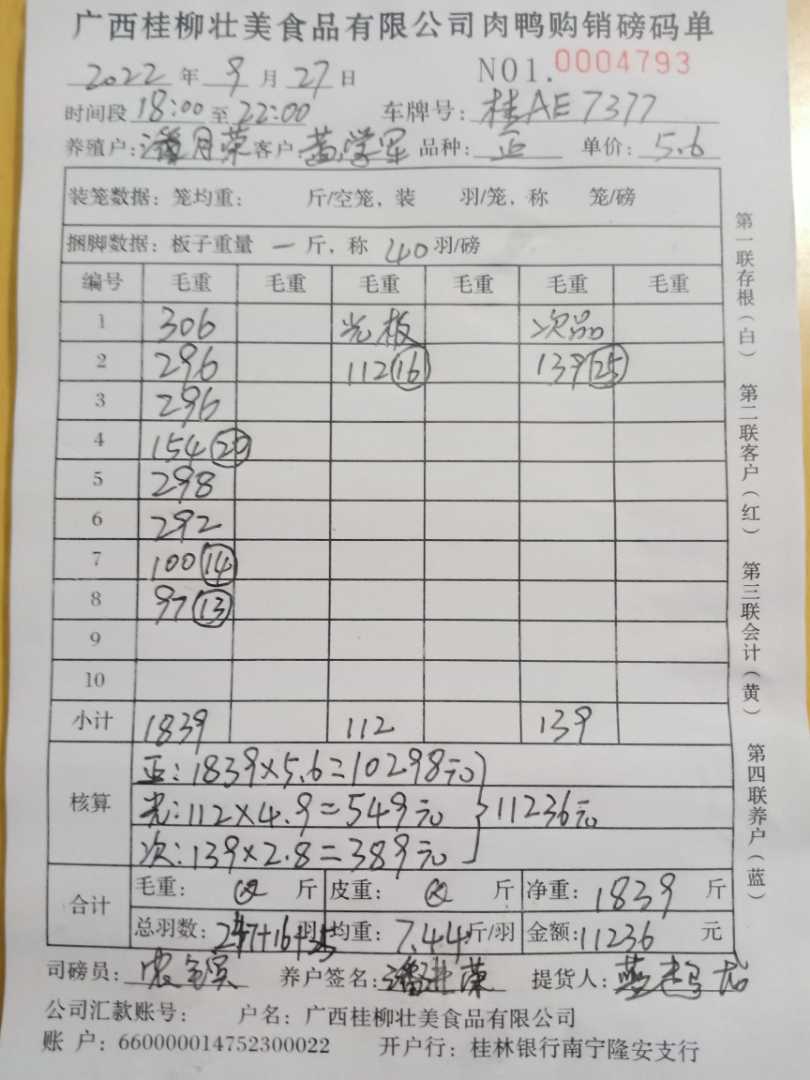 广西桂柳壮美食品有限公司肉鸭购销磅码单
2022 年 9 月 27 日 NO1. 0004793
时间段 18:00 至 22:00 车牌号: 桂AE7377
养殖户: 潘月荣 客户 黄学军 品种: 正 单价: 5.6
装笼数据: 笼均重: 斤/空笼, 装 羽/笼, 称 笼/磅
捆脚数据: 板子重量 一 斤, 称 40 羽/磅
编号 毛重 毛重 毛重 毛重 毛重 毛重
1 306 光板 次品
2 296 112(16) 139(25)
3 296
4 154(20)
5 298
6 292
7 100(14)
8 97(13)
9
10
小计 1839 112 139
核算
正: 1839×5.6=10298元
光: 112×4.9=549元 } 11236元
次: 139×2.8=389元
合计 毛重: 斤 皮重: 斤 净重: 1839 斤
总羽数: 247+16+25 羽 均重: 7.44 斤/羽 金额: 11236 元
司磅员: 养户签名: 提货人:
公司汇款账号: 户名: 广西桂柳壮美食品有限公司
账 户: 660000014752300022 开户行: 桂林银行南宁隆安支行
第一联存根(白) 第二联客户(红) 第三联会计(黄) 第四联养户(蓝)